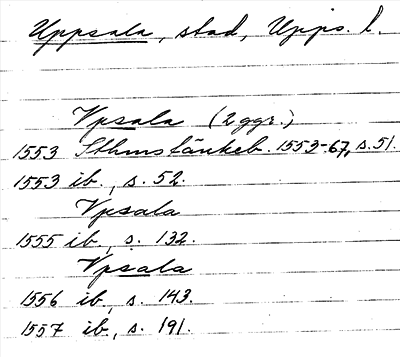 Uppsala, stad, Upps. l.
Vpsala (2 ggr.)
1553 Sthms tänkeb. 1553-67, s. 51.
1553 ib., s. 52.
Vpsala
1555 ib., s. 132.
Vpsala
1556 ib., s. 143.
1557 ib., s. 191.